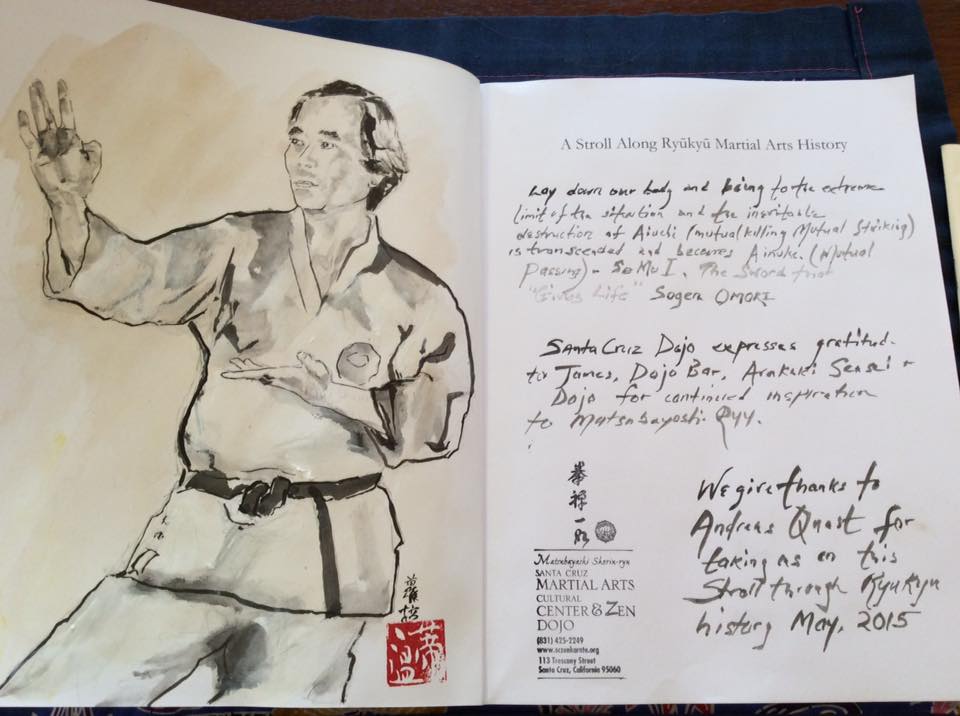 A Stroll Along Ryūkyū Martial Arts History
Lay down our body and being to the extreme
limit of the situation and the inevitable
destruction of Aiuchi (mutual killing Mutual Striking)
is transcended and becomes Ainuke. (Mutual
Passing) - Se Mu I, The Sword that
"Gives Life" Sogen OMORI
Santa Cruz Dojo expresses gratitude
to James, Dojo Bar, Arakaki Sensei +
Dojo for continued inspiration
to Matsubayoshi Ryu.
拳禅一致
We give thanks to
Andreas Quast for
taking us on this
Stroll through Ryukyu
history May, 2015
Matsubayashi Shorin-ryu
SANTA CRUZ
MARTIAL ARTS
CULTURAL
CENTER & ZEN
DOJO
(831) 425-2249
www.sczenkarate.org
113 Trescany Street
Santa Cruz, California 95060